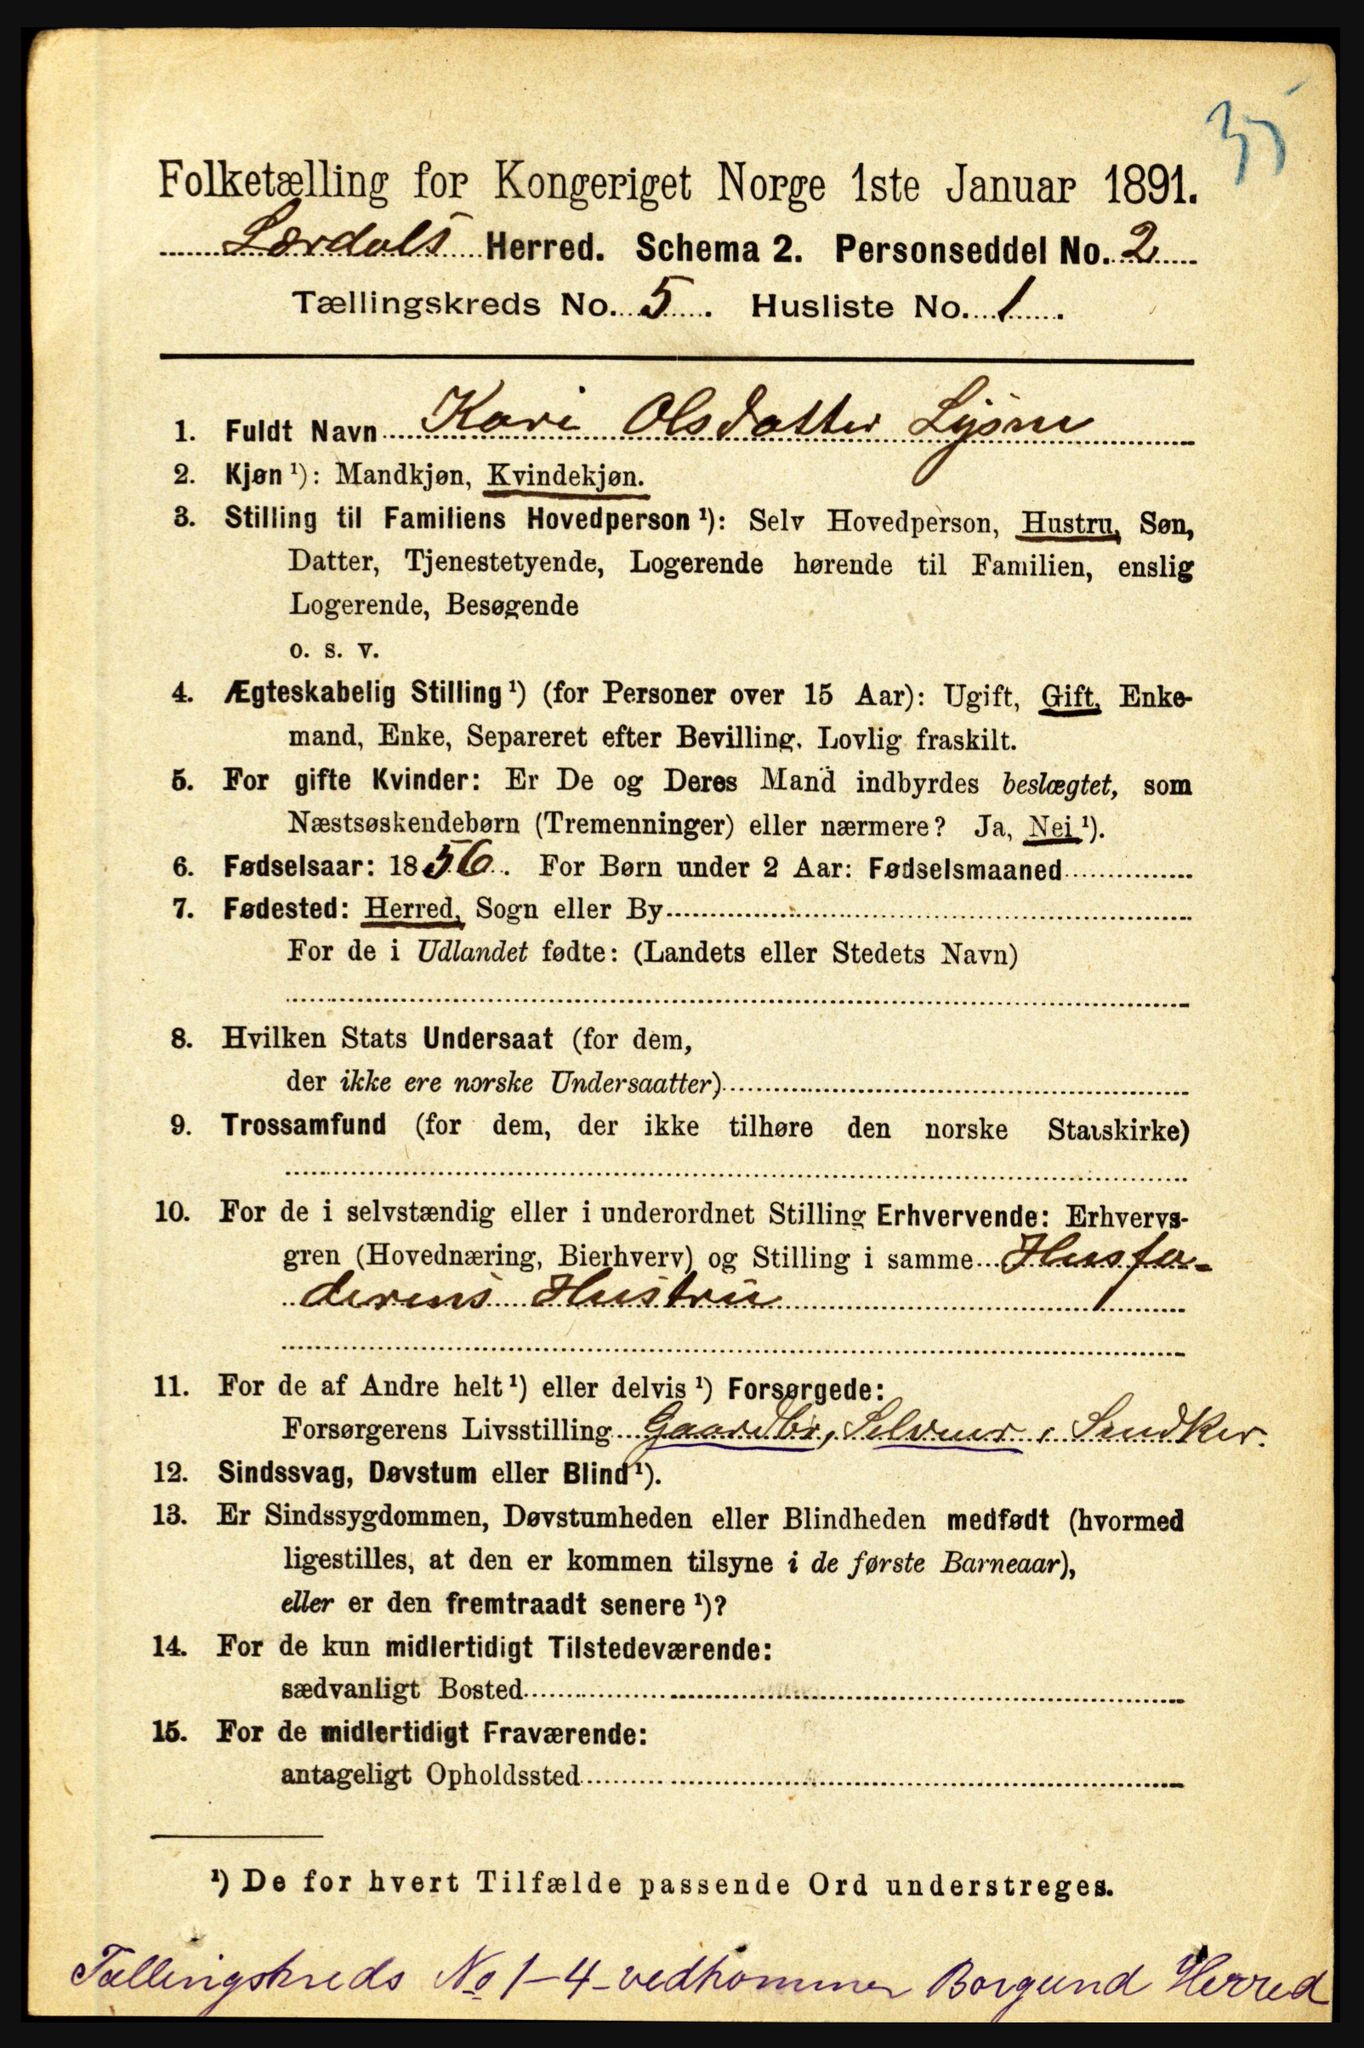 35
Folketælling for Kongeriget Norge 1ste Januar 1891.
Lærdals Herred. Schema 2. Personseddel No. 2
Tællingskreds No. 5. Husliste No. 1.
1. Fuldt Navn Kari Olsdatter Lysne
2. Kjøn ¹): Mandkjøn, Kvindekjøn.
3. Stilling til Familiens Hovedperson ¹): Selv Hovedperson, Hustru, Søn,
Datter, Tjenestetyende, Logerende hørende til Familien, enslig
Logerende, Besøgende
o. s. v.
4. Ægteskabelig Stilling ¹) (for Personer over 15 Aar): Ugift, Gift, Enke-
mand, Enke, Separeret efter Bevilling. Lovlig fraskilt.
5. For gifte Kvinder: Er De og Deres Mand indbyrdes beslægtet, som
Næstsøskendebørn (Tremenninger) eller nærmere? Ja, Nei ¹).
6. Fødselsaar: 1856. For Børn under 2 Aar: Fødselsmaaned
7. Fødested: Herred, Sogn eller By
For de i Udlandet fødte: (Landets eller Stedets Navn)
8. Hvilken Stats Undersaat (for dem,
der ikke ere norske Undersaatter)
9. Trossamfund (for dem, der ikke tilhøre den norske Statskirke)
10. For de i selvstændig eller i underordnet Stilling Erhvervende: Erhvervs-
gren (Hovednæring, Bierhverv) og Stilling i samme Husfa-
derens Hustru
11. For de af Andre helt ¹) eller delvis ¹) Forsørgede:
Forsørgerens Livsstilling Gaardbr, Selveier,
12. Sindssvag, Døvstum eller Blind ¹).
13. Er Sindssygdommen, Døvstumheden eller Blindheden medfødt (hvormed
ligestilles, at den er kommen tilsyne i de første Barneaar),
eller er den fremtraadt senere ¹)?
14. For de kun midlertidigt Tilstedeværende:
sædvanligt Bosted
15. For de midlertidigt Fraværende:
antageligt Opholdssted
¹) De for hvert Tilfælde passende Ord understreges.
Tællingskreds No 1-4 vedkommer Borgund Herred